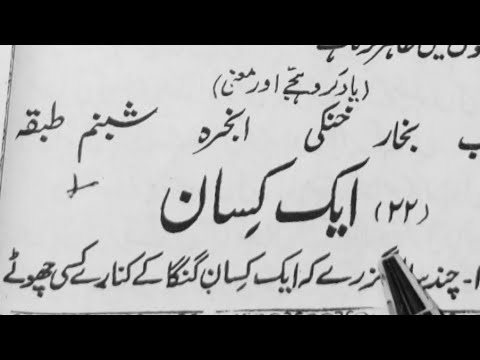 (یاد کرو ہجے اور معنی)
بخار خنکی ابخرہ شبنم طبقہ
(۲۲) ایک کِسان
۱۔ چند گزرے کہ ایک کِسان گنگا کے کنارے کسی چھوٹے